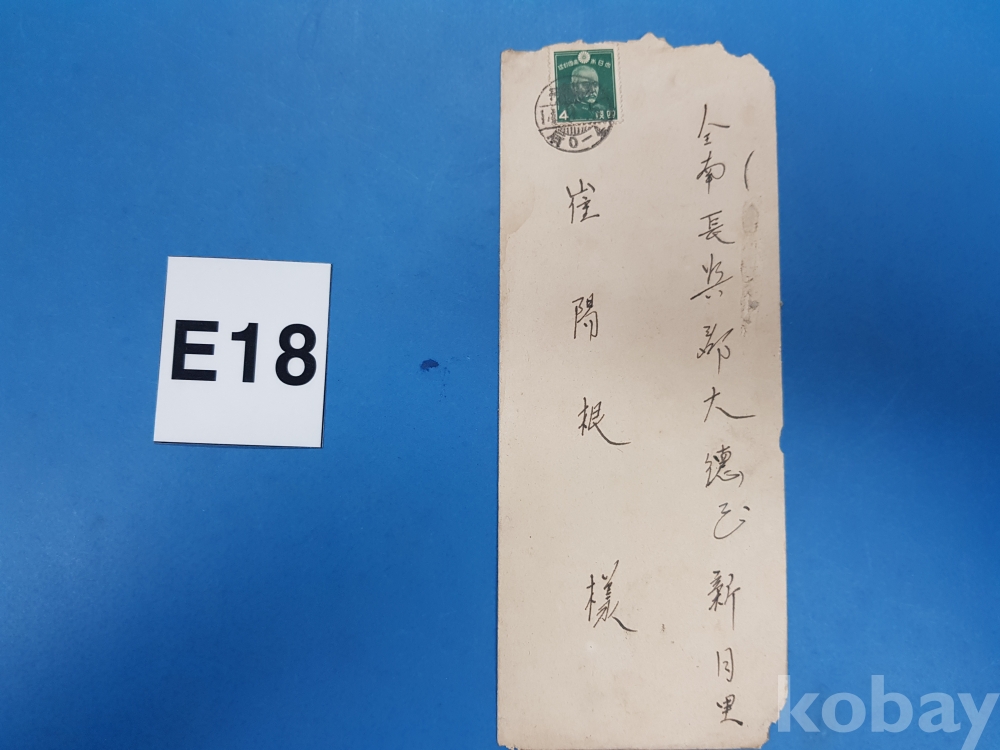 E18
全南長興郡大德面新月里
崔陽根 樣
4
kobay